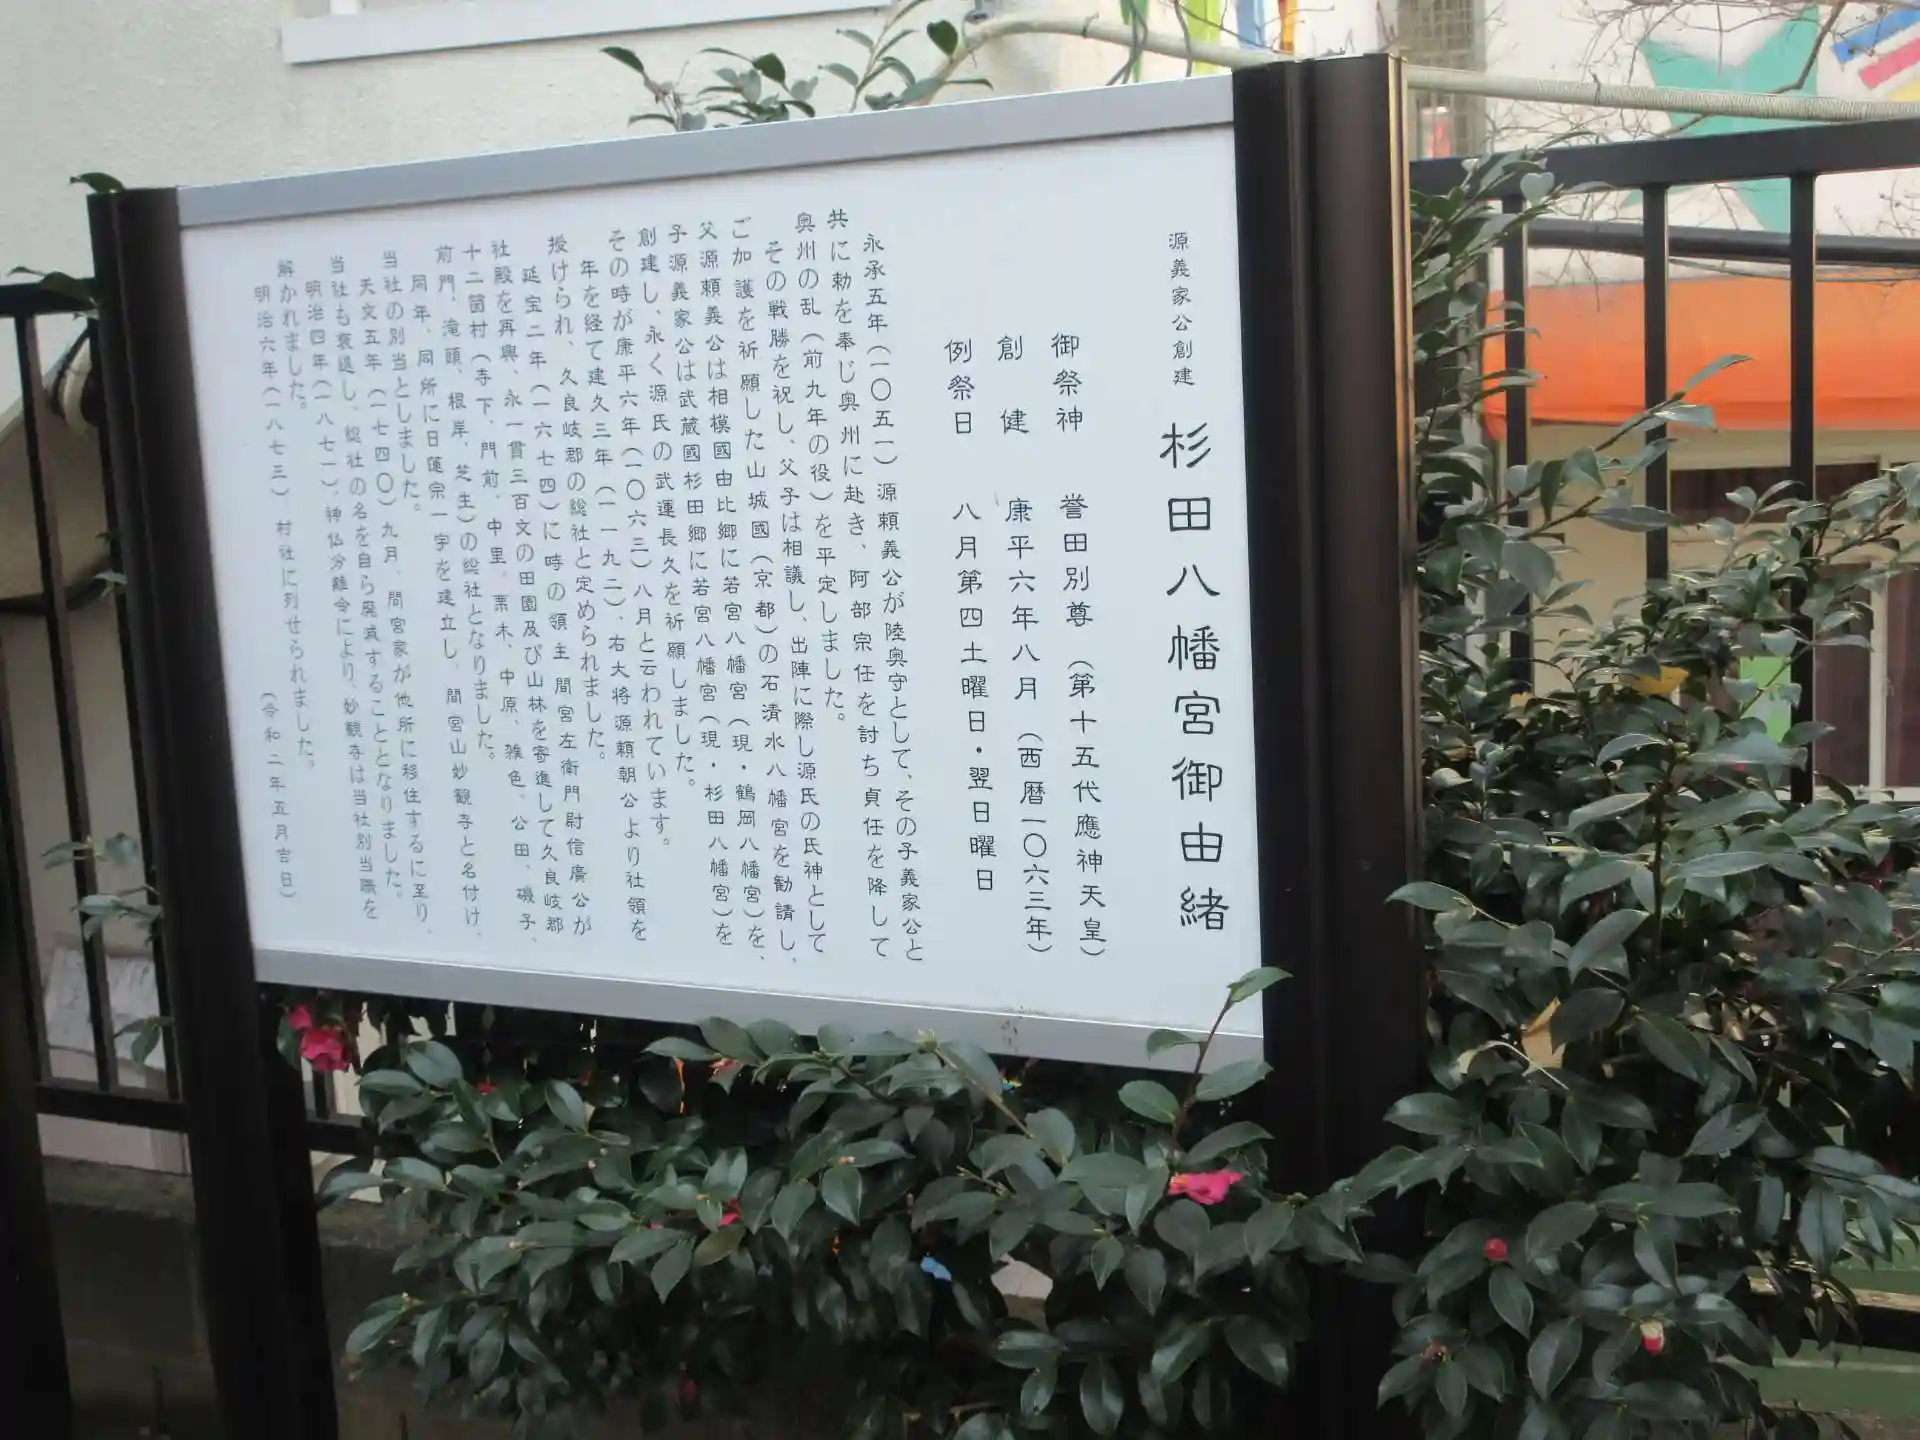 源義家公創建 杉田八幡宮御由緒
御祭神 誉田別尊(第十五代應神天皇)
創健 康平六年八月(西暦一〇六三年)
例祭日 八月第四土曜日・翌日曜日
永承五年(一〇五一)源頼義公が陸奥守として、その子義家公と
共に勅を奉じ奥州に赴き、阿部宗任を討ち貞任を降して
奥州の乱(前九年の役)を平定しました。
その戦勝を祝し、父子は相議し、出陣に際し源氏の氏神として
ご加護を祈願した山城國(京都)の石清水八幡宮を勧請し、
父源頼義公は相模國由比郷に若宮八幡宮(現・鶴岡八幡宮)を、
子源義家公は武蔵國杉田郷に若宮八幡宮(現・杉田八幡宮)を
創建し、永く源氏の武運長久を祈願しました。
その時が康平六年(一〇六三)八月と云われています。
年を経て建久三年(一一九二)、右大将源頼朝公より社領を
授けられ、久良岐郡の総社と定められました。
延宝二年(一六七四)に時の領主間宮左衛門尉信廣公が
社殿を再興、永一貫三百文の田園及び山林を寄進して久良岐郡
十二箇村(寺下、門前、中里、栗木、中原、雑色、公田、磯子、
前門、滝頭、根岸、芝生)の総社となりました。
同年、同所に日蓮宗一宇を建立し、間宮山妙観寺と名付け、
当社の別当としました。
天文五年(一七四〇)九月、間宮家が他所に移住するに至り、
当社も衰退し、総社の名を自ら廃減することとなりました。
明治四年(一八七一)、神仏分離令により、妙観寺は当社別当職を
解かれました。
明治六年(一八七三)、村社に列せられました。
(令和二年五月吉日)